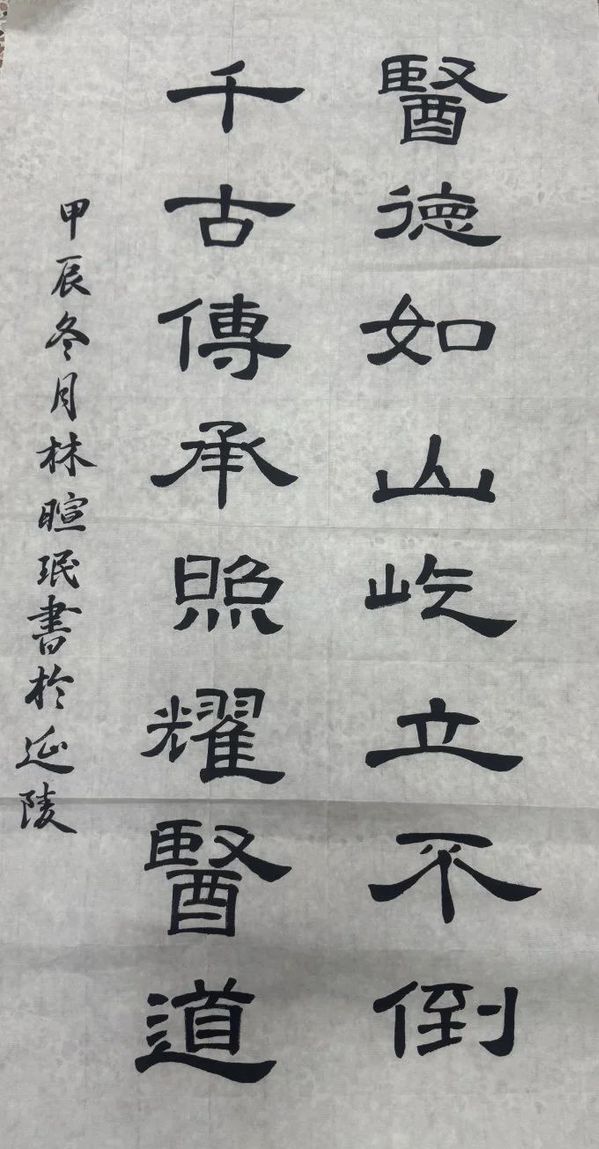 醫德如山屹立不倒
千古傳承照耀醫道
甲辰冬月林暄珉書於延陵